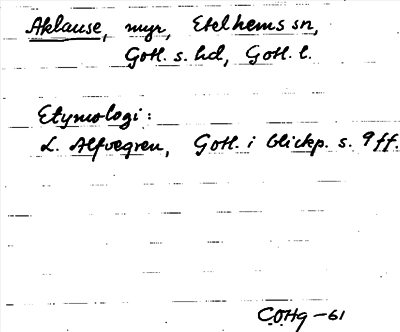 Aklause, myr, Etelhems sn,
Gotl. s. hd, Gotl. l.
Etymologi:
L. Alfvegren, Gotl. i blickp. s. 9 ff.
COHg -61